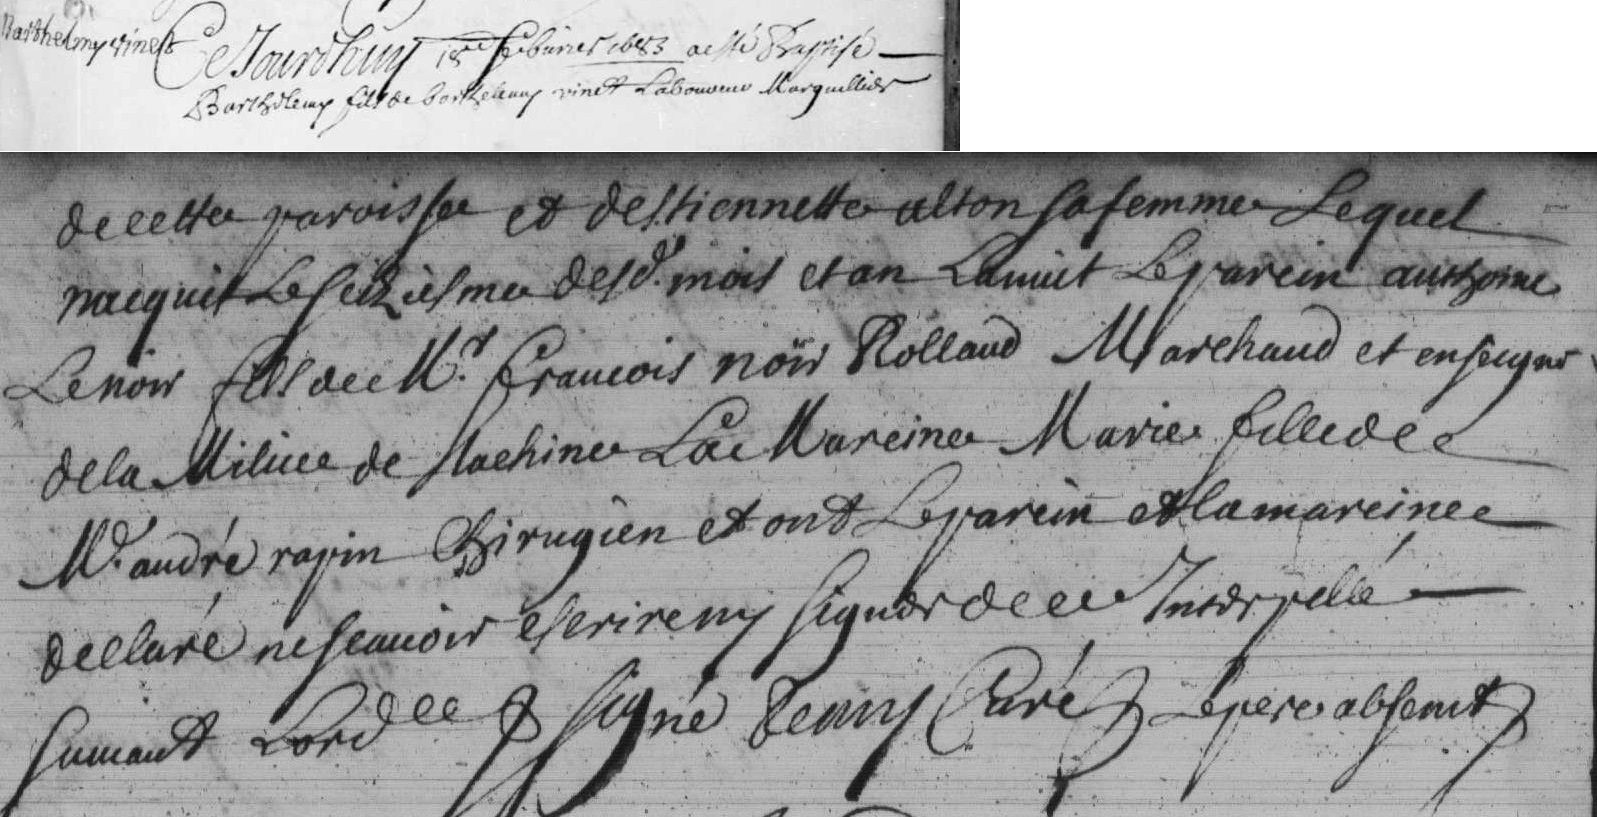 Barthelmy vinet
Ce Jourdhuy 18e febvrier 1683 a esté Baptisé
Barthelemy fils de barthelemy vinet Laboureur Marguillier
de cette paroisse et destiennette alton sa femme Lequel
nacquit Le seiziesme desd. mois et an Lanuict Le parein anthoine
Lenoir fils de Mr. francois noir Rolland Marchand et enseigne
de la Milice de Lachine La Mareine Marie fille de
Mr. andré rapin Chirugien et ont Leparein et la mareine
declaré ne scauoir escrire ny signer de ce Interpellé
suiuant Lord signé Remy Curé Le pere absent